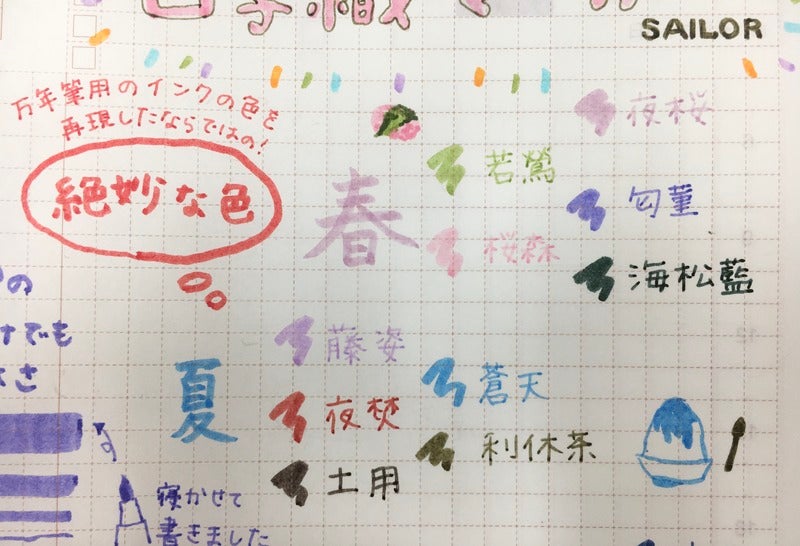 四季織
SAILOR
万年筆用のインクの色を
再現したならではの!
絶妙な色
春
若鶯
桜森
夜桜
匂菫
海松藍
の
けでも
さ
夏
藤姿
夜焚
土用
蒼天
利休茶
寝かせて
書きました